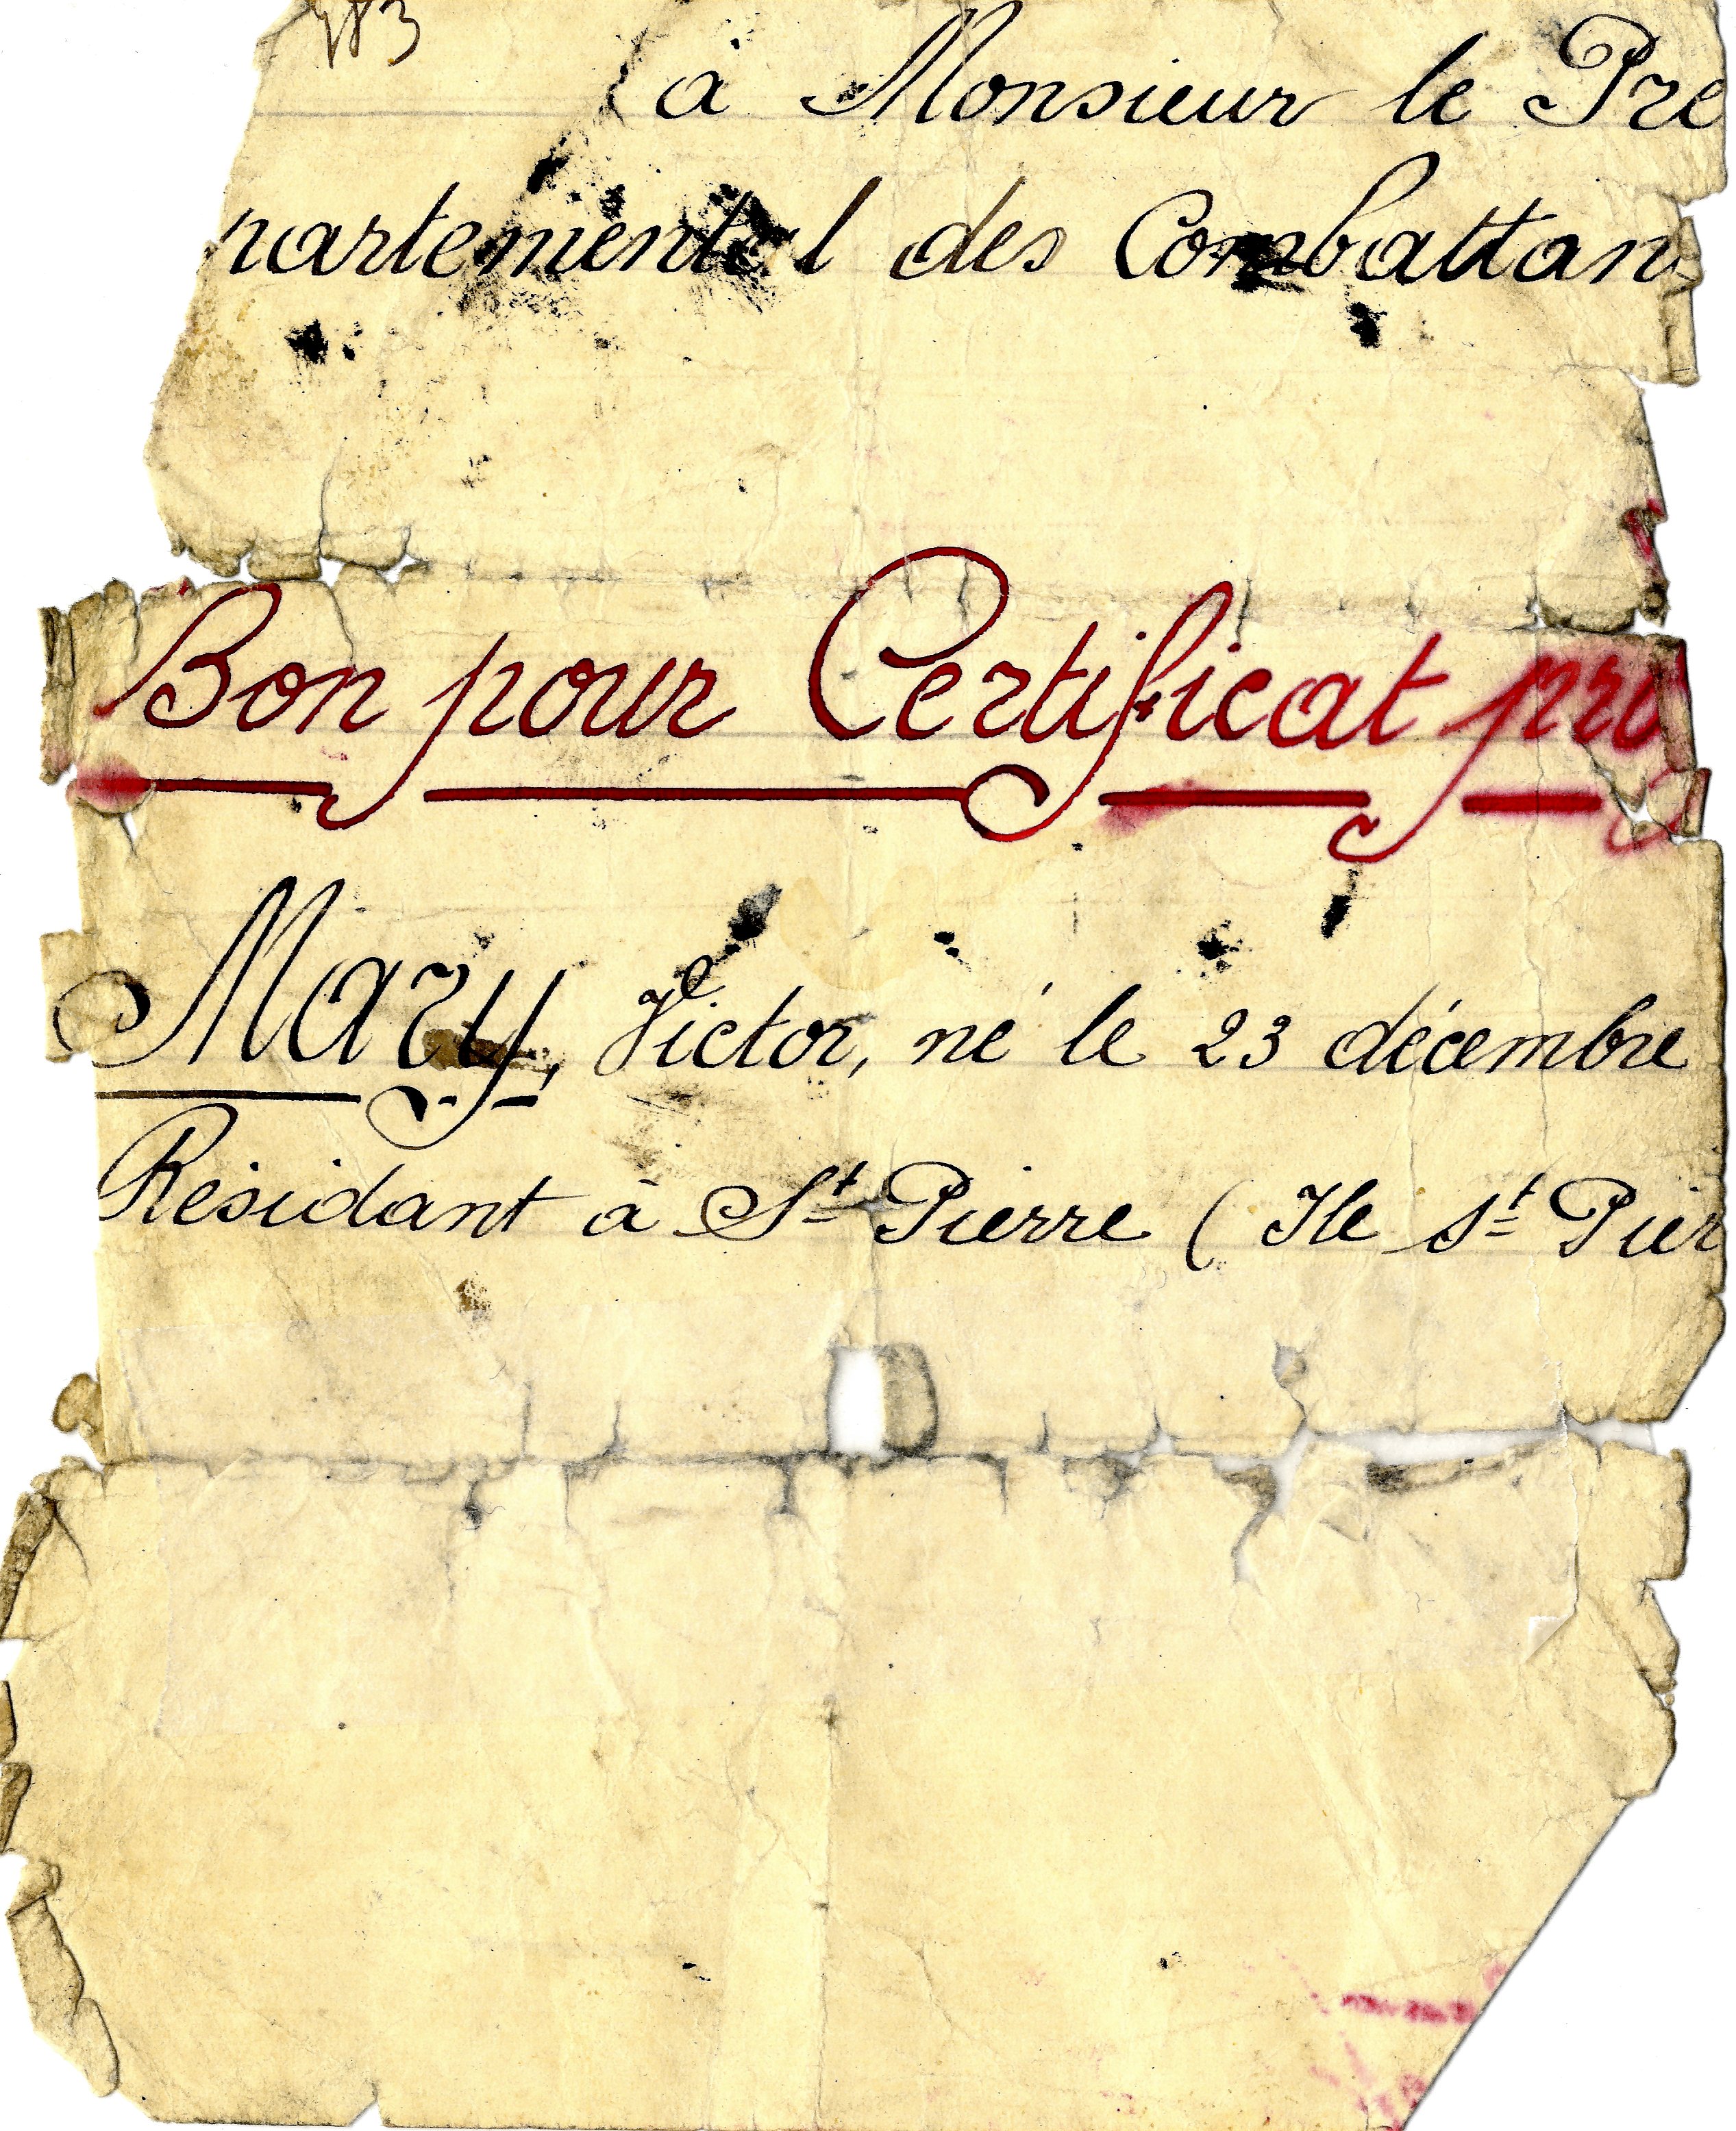 à Monsieur le Pré
partemental des Combattan
Bon pour Certificat pro
Mary, Victor, né le 23 décembre
Résidant à St Pierre (Ile St Pier